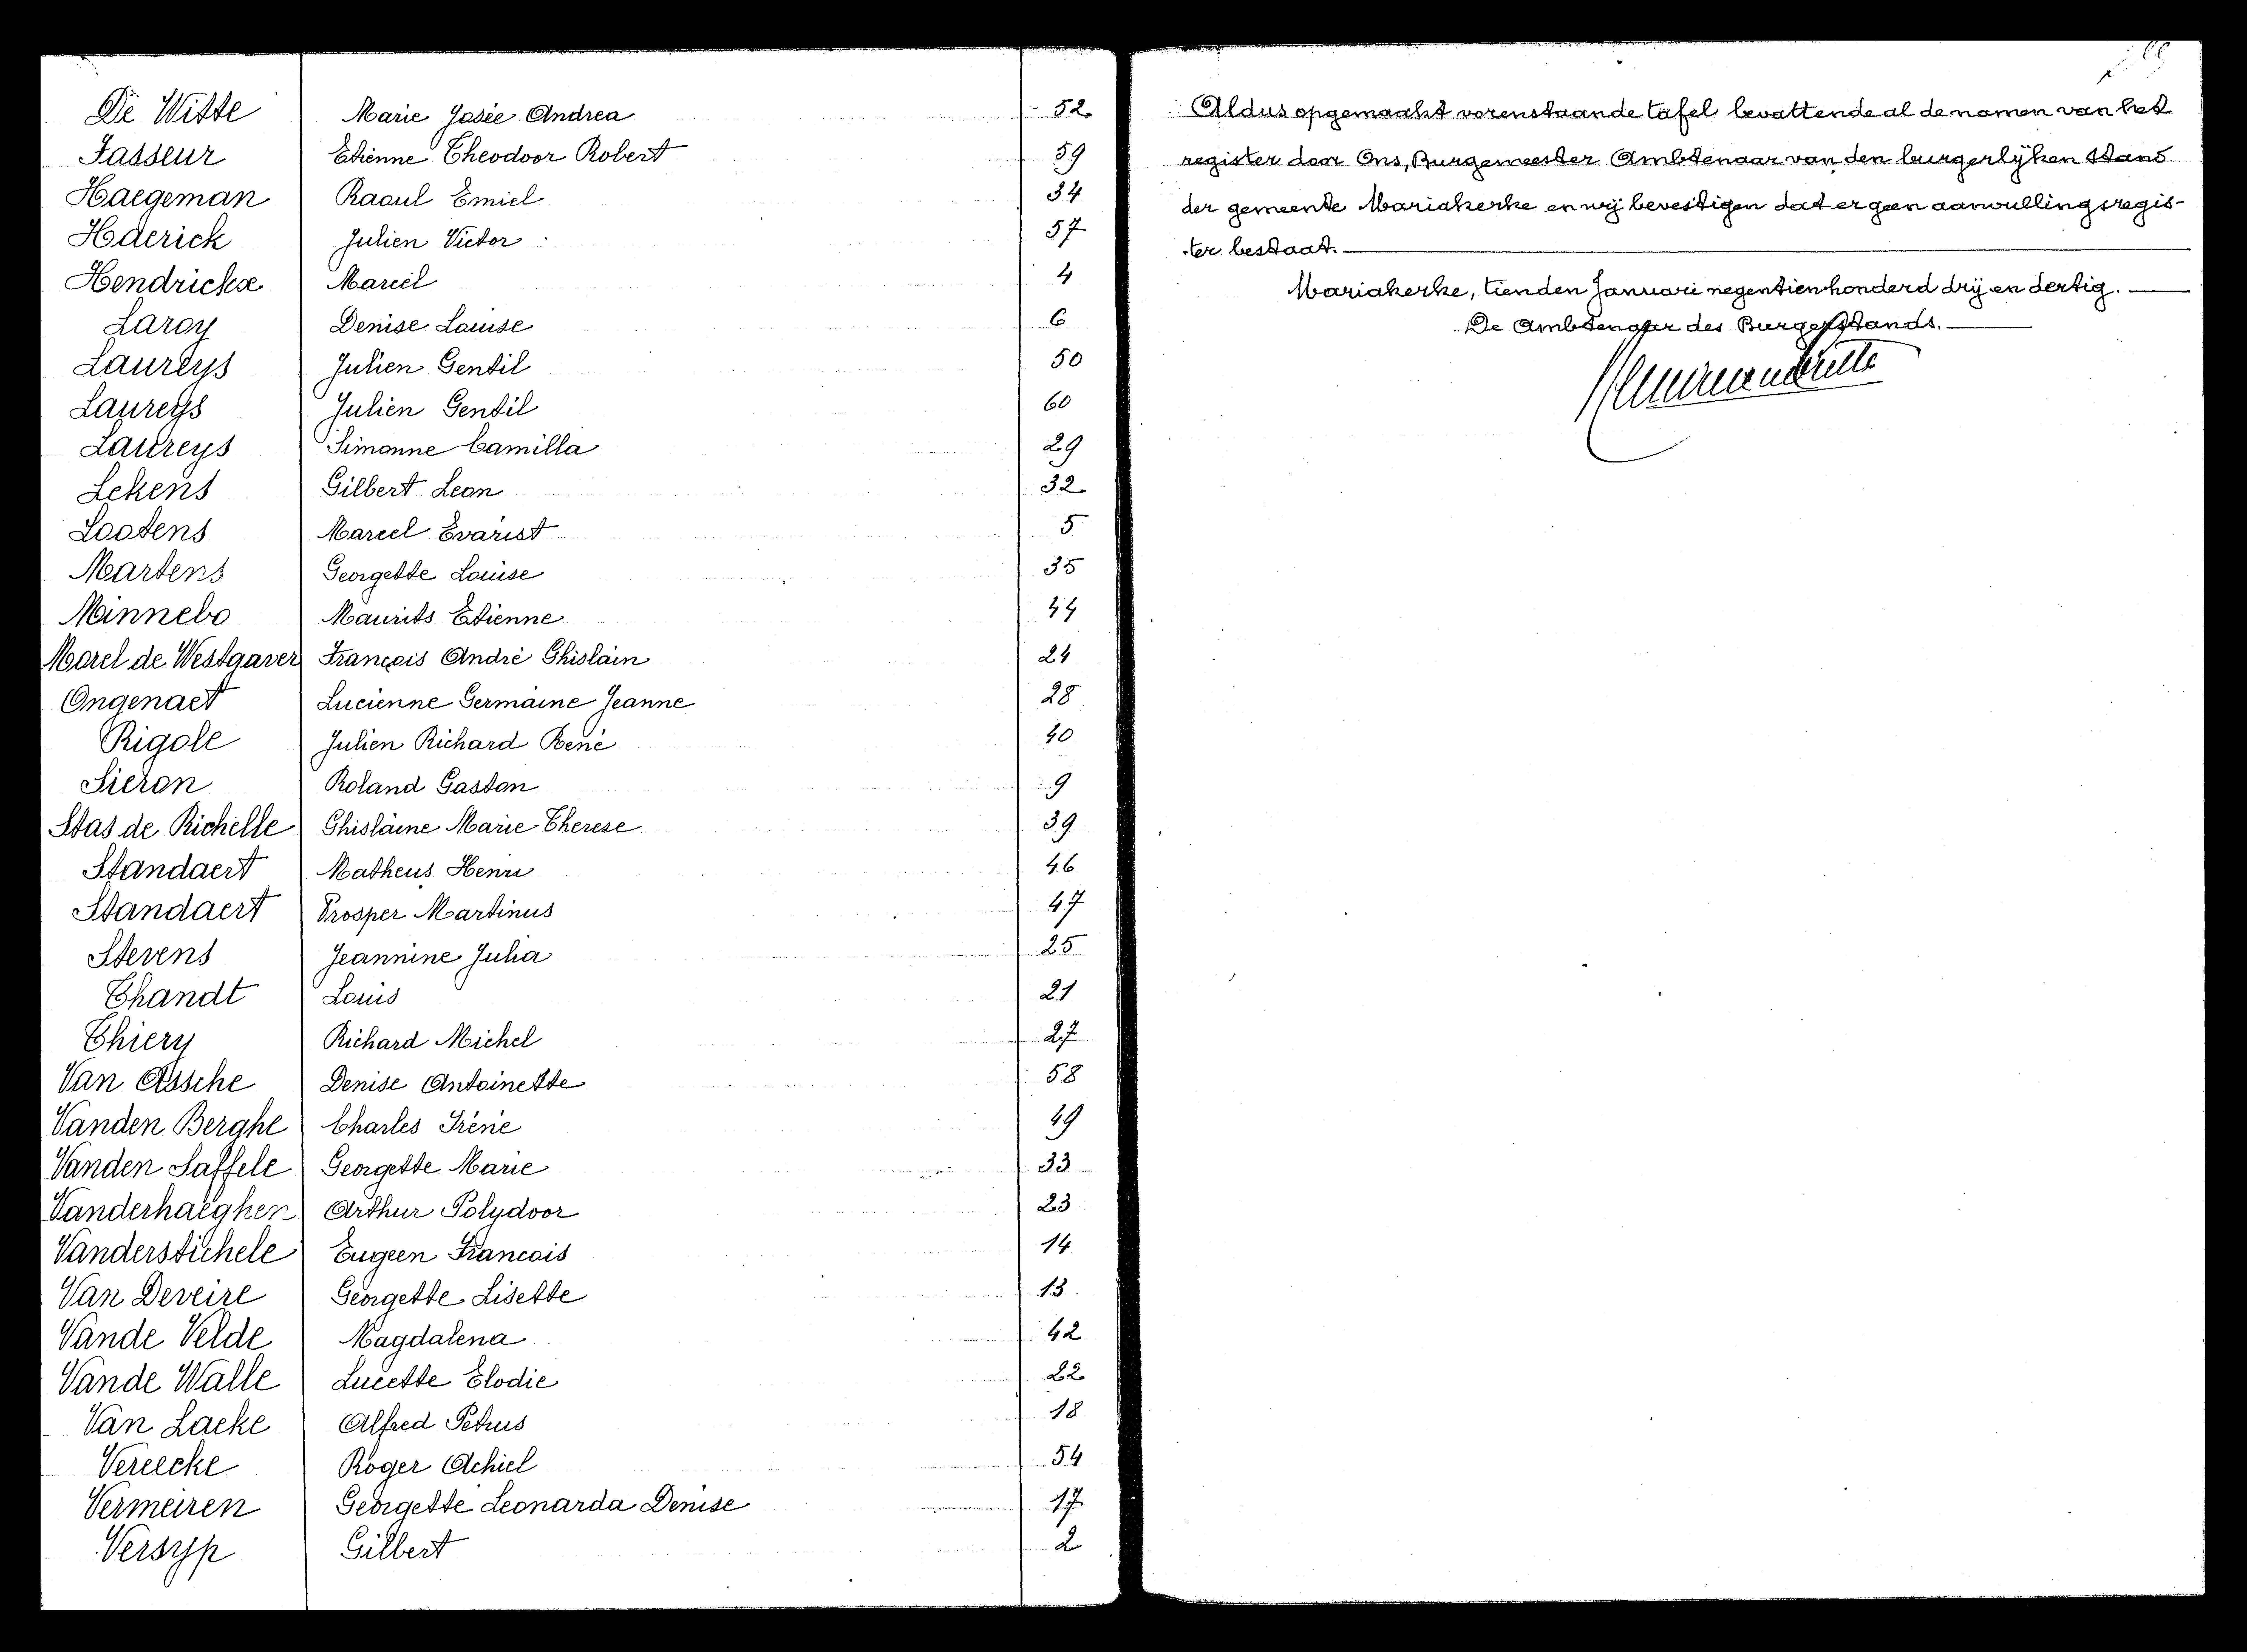 De Witte Marie Josée Andrea 52
Fasseur Etienne Theodoor Robert 59
Haegeman Raoul Emiel 34
Hderick Julien Victor 57
Hendrickx Marcel 4
Laroy Denise Louise 6
Laureys Julien Gentil 50
Laureys Julien Gentil 60
Laureys Simonne Camilla 29
Lekens Gilbert Leon 32
Lootens Marcel Evarist 5
Martens Georgette Louise 35
Minnebo Maurits Etienne 44
Morel de Westgaver François André Ghislain 24
Ongenaet Lucienne Germaine Jeanne 28
Rigole Julien Richard René 40
Sieron Roland Gaston 9
Stas de Richelle Ghislaine Marie Therese 39
Standaert Matheus Henri 46
Standaert Prosper Martinus 47
Stevens Jeannine Julia 25
Thandt Louis 21
Thiery Richard Michel 27
Van Assche Denise Antoinette 58
Vanden Berghe Charles Iréné 49
Vanden Saffele Georgette Marie 33
Vanderhaeghen Arthur Polydoor 23
Vanderstichele Eugeen Francois 14
Van Deveire Georgette Lisette 13
Vande Velde Magdalena 42
Vande Walle Lucette Elodie 22
Van Laeke Alfred Petrus 18
Vereecke Roger Achiel 54
Vermeiren Georgette Leonarda Denise 17
Versyp Gilbert 2
Aldus opgemaakt vorenstaande tafel bevattende al de namen van het
register door Ons, Burgemeester Ambtenaar van den burgerlijken stand
der gemeente Mariakerke en wij bevestigen dat er geen aanvullingsregis-
ter bestaat.
Mariakerke, tienden Januari negentienhonderd drij en dertig.
De Ambtenaar des Burgerstands.